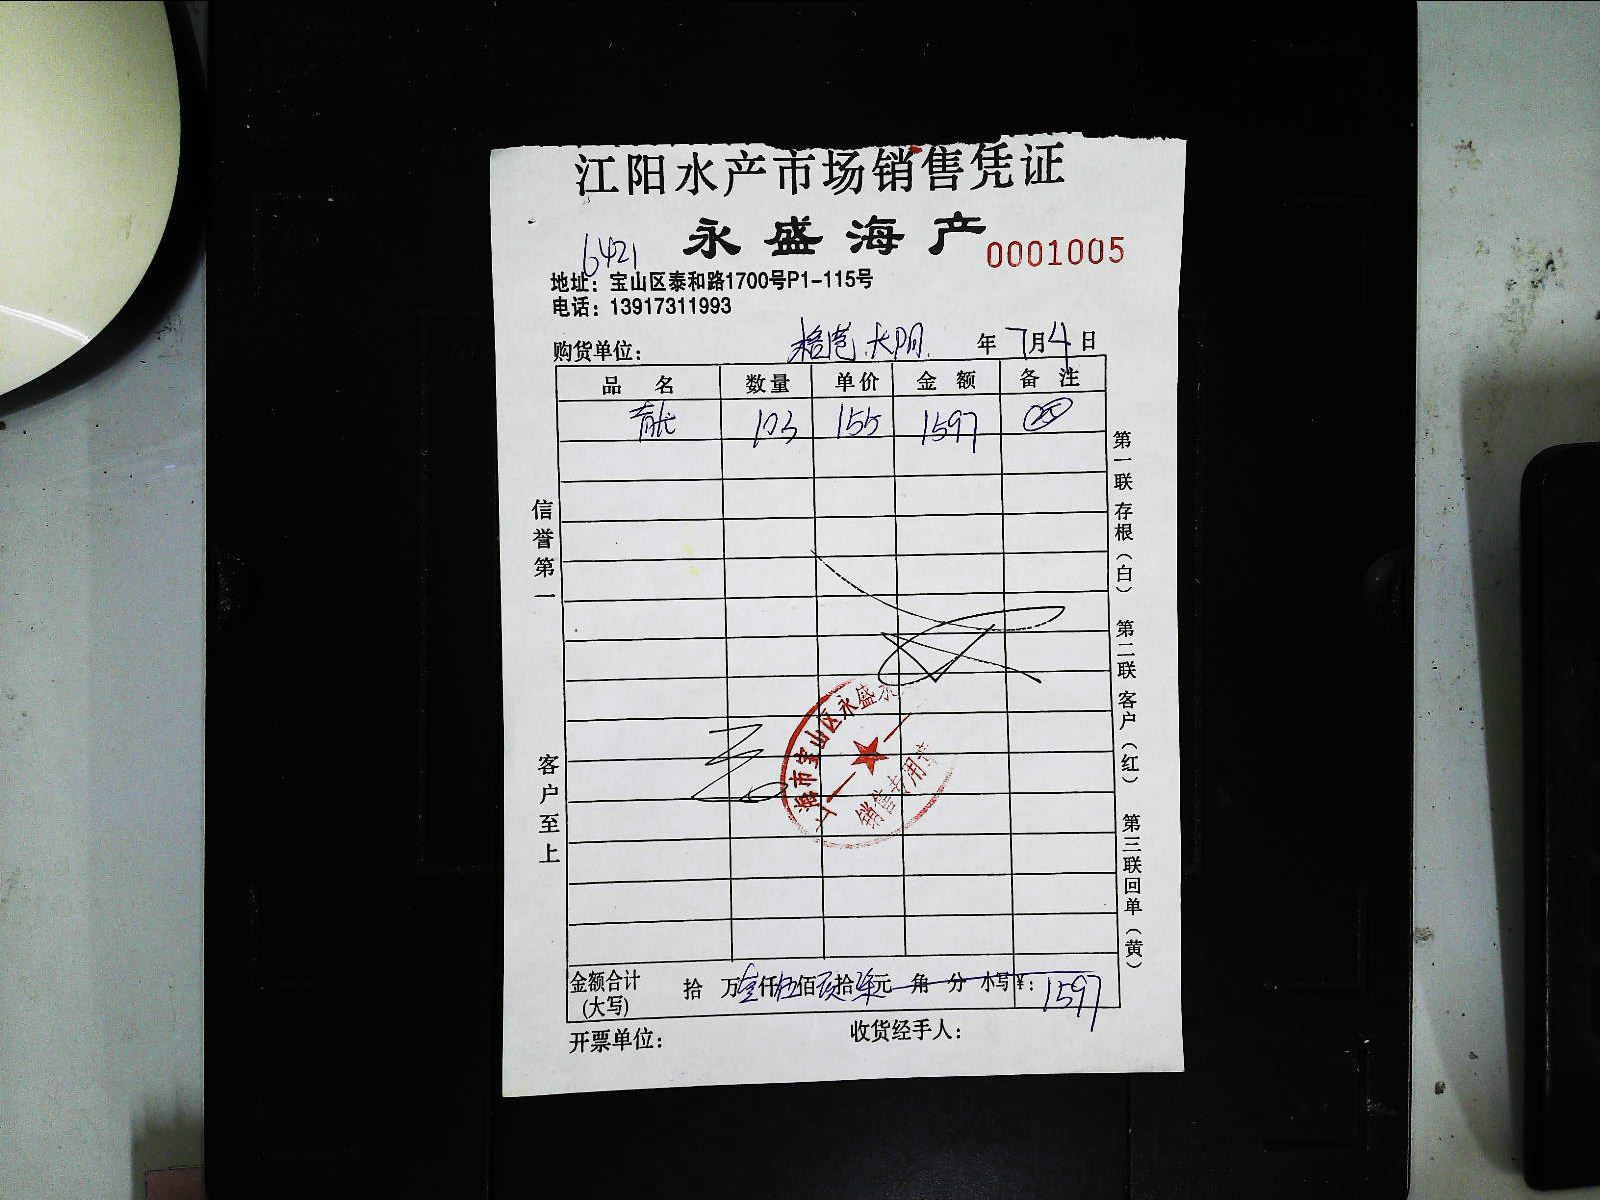 江阳水产市场销售凭证
永盛海产
6421
0001005
地址：宝山区泰和路1700号P1-115号
电话：13917311993
购货单位： 年 7月4日
品名 数量 单价 金额 备注
青龙 103 155 1597
信誉第一
客户至上
第一联 存根（白） 第二联 客户（红） 第三联 回单（黄）
海市宝山区永盛水
销售专用章
金额合计 拾 万壹仟伍佰玖拾柒元 角 分 小写¥：1597
(大写)
开票单位： 收货经手人：